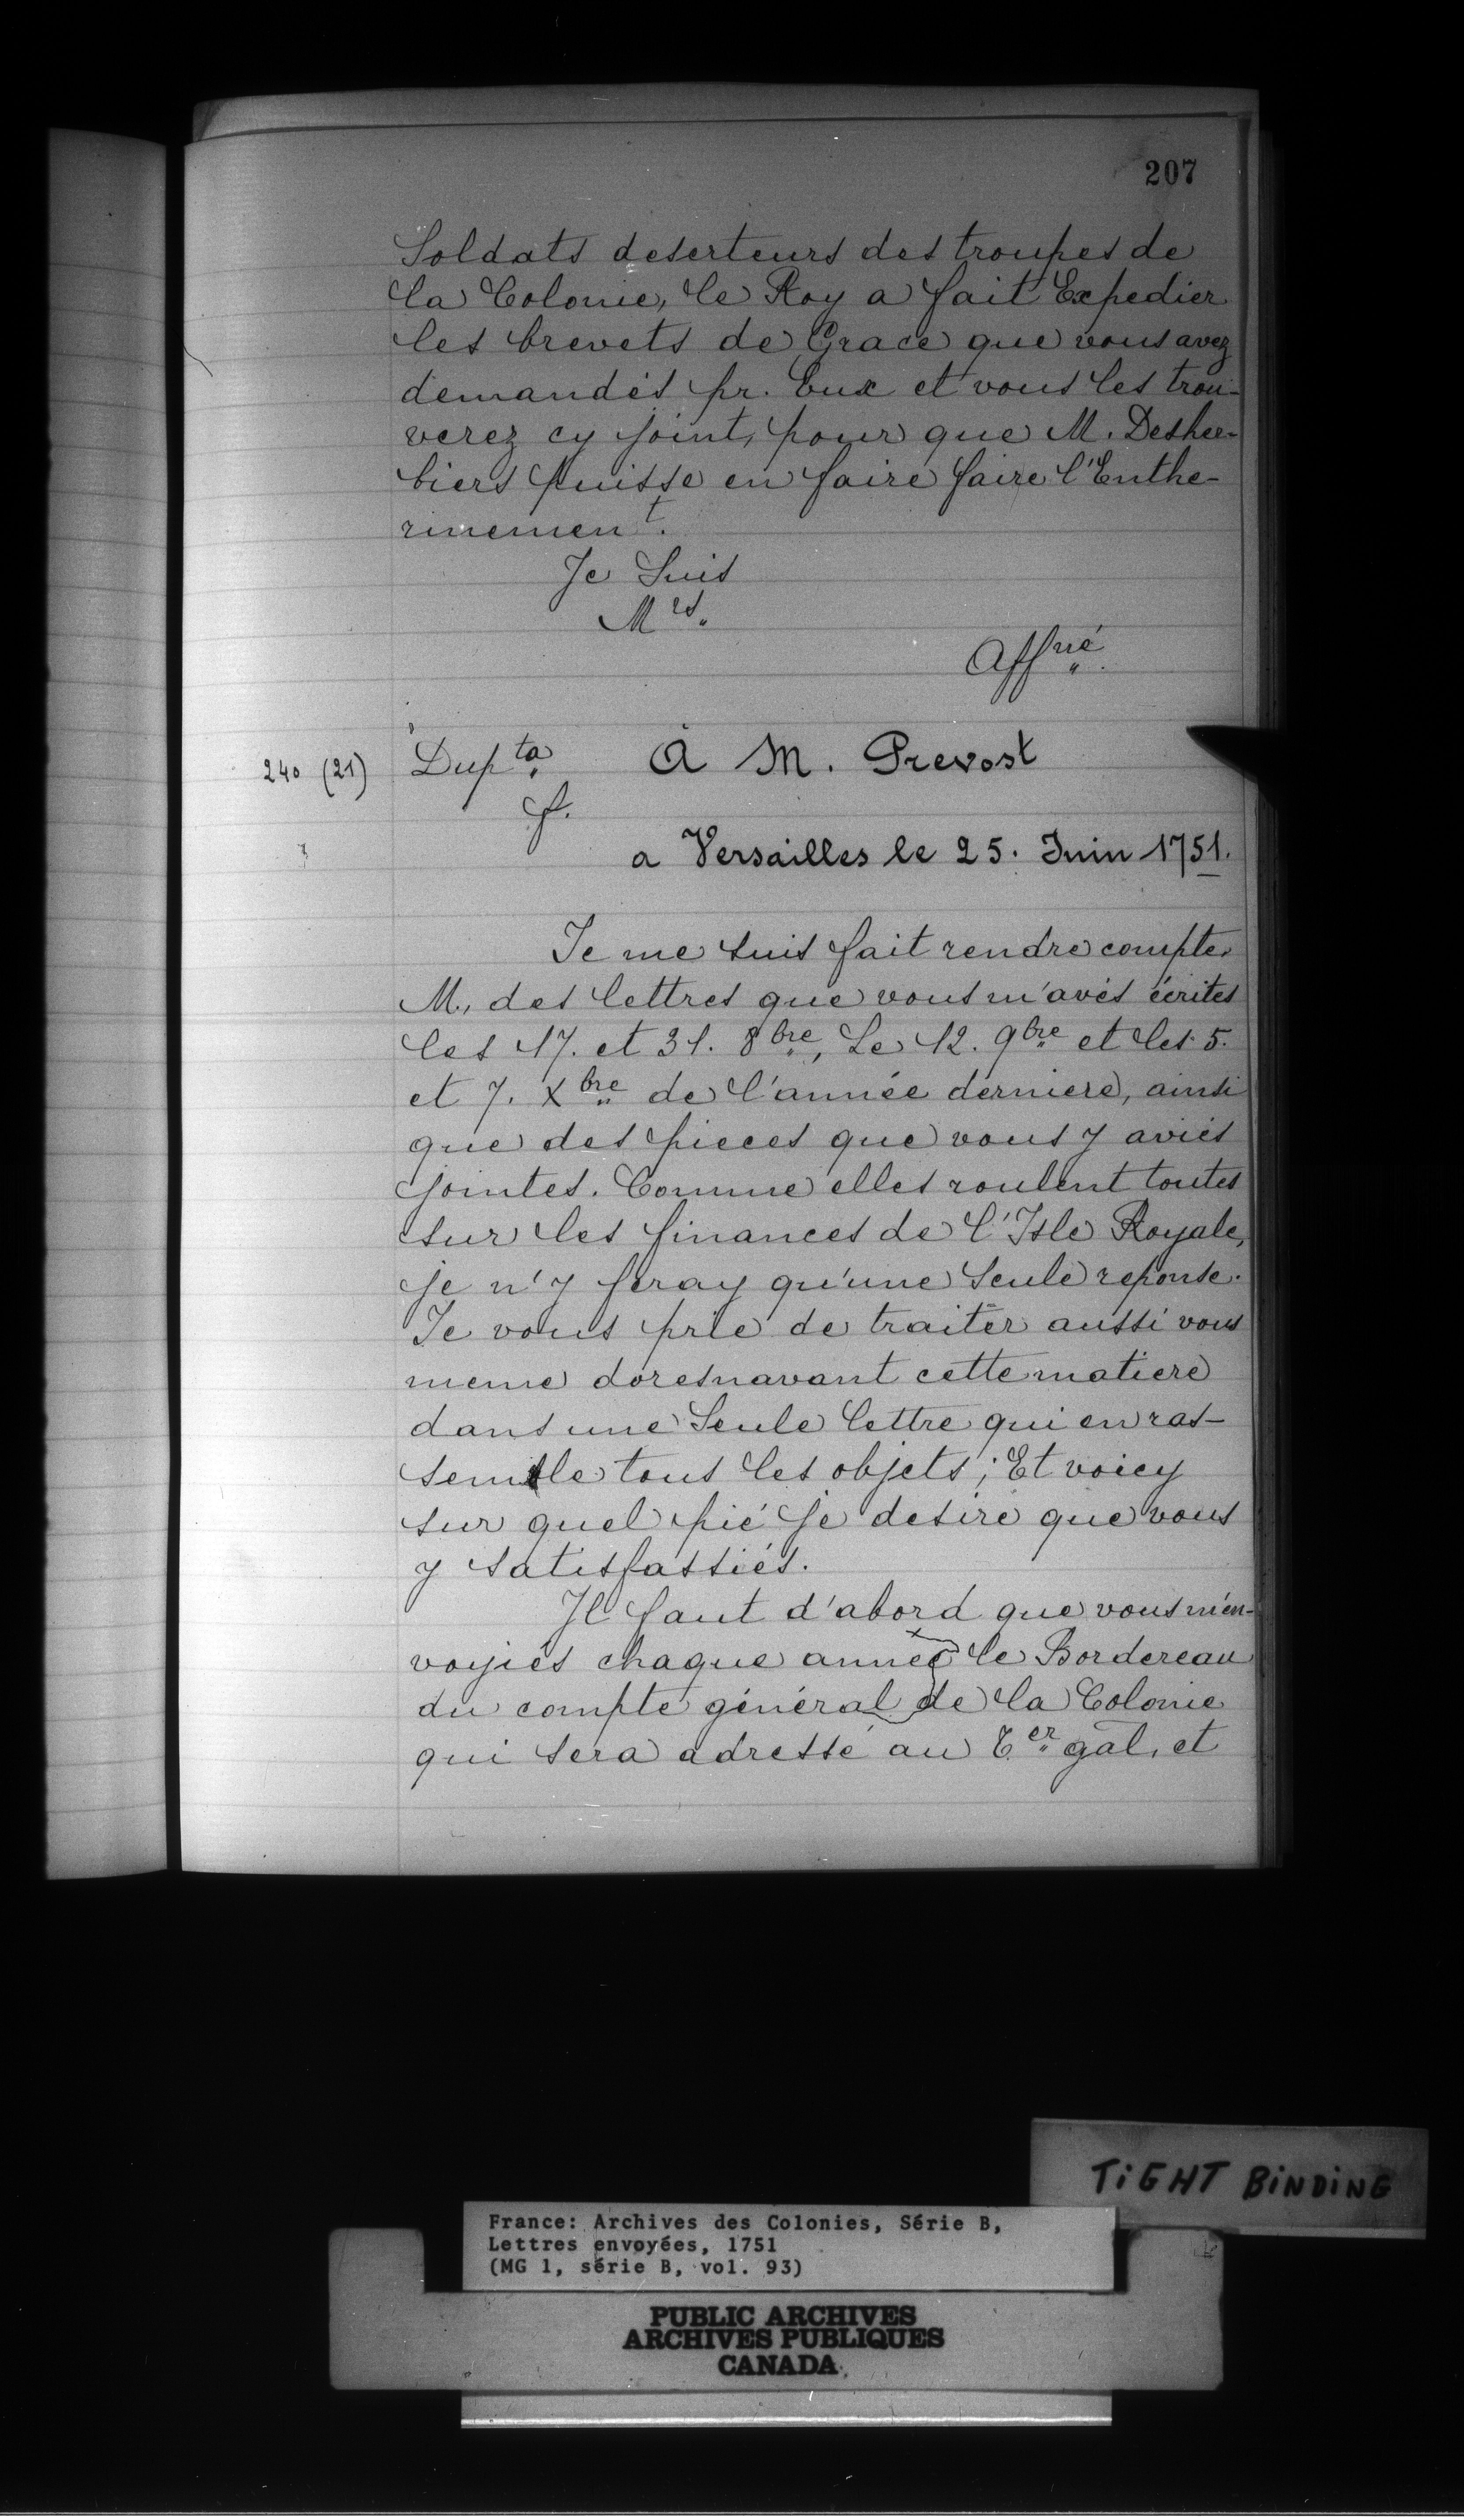 207
Soldats deserteurs des troupes de
la Colonie, le Roy a fait Expedier
les brevets de Grace que vous avez
demandés pr. Eux et vous les trou-
verez cy joint, pour que M. Desher-
biers puisse en faire faire l'Enthe-
rinement.
Je Suis
Mrs.
Affné.
240 (21) Dupta. À M. Prevost
f.
a Versailles le 25. Juin 1751.
Je me suis fait rendre compte,
M., des lettres que vous m'avés écrites
les 17. et 31. 8bre, Le 12. 9bre et les 5.
et 7. Xbre de l'année derniere, ainsi
que des pieces que vous y aviés
jointes. Comme elles roulent toutes
sur les finances de l'Isle Royale,
je n'y feray qu'une seule reponse.
Je vous prie de traiter aussi vous
meme doresnavant cette matiere
dans une Seule lettre qui en ras-
semble tous les objets; Et voicy
sur quel pié je desire que vous
y satisfassiés.
Il faut d'abord que vous m'en-
voyiés chaque année le Bordereau
du compte général de la Colonie
qui sera adressé au Ter gal, et
TIGHT BINDING
France: Archives des Colonies, Série B,
Lettres envoyées, 1751
(MG 1, série B, vol. 93)
PUBLIC ARCHIVES
ARCHIVES PUBLIQUES
CANADA